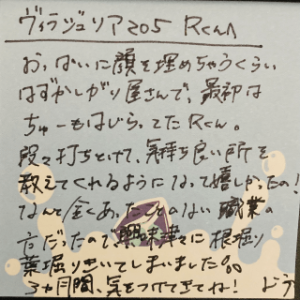 ヴィラジュリア205 Rくんへ
おっぱいに顔を埋めちゃうくらい
はずかしがり屋さんで、最初は
ちゅーもはじらってたRくん。
段々打ちとけて、気持ち良い所を
教えてくれるようになって嬉しかったの!
なんと全くあったことのない職業の
方だったので興味津々に根掘り
葉掘りきいてしまいました
3ヵ月間、気をつけてきてね! よう